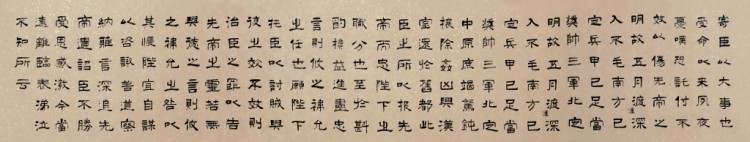 寄臣以大事也
受命以来夙夜
憂嘆恐託付不
效以傷先帝之
明故五月渡瀘深
入不毛南方已
定兵甲已足當
獎帥三軍北定
明故五月渡瀘深
入不毛南方已
定兵甲已足當
獎帥三軍北定
中原庶竭駑鈍
攘除姦凶興漢
室還於舊都此
臣之所以報先
帝而忠陛下之
職分也至於斟
酌損益進盡忠
言則攸之禕允
之任也願陛下
託臣以討賊興
復之效不效則
治臣之罪以告
先帝之靈若無
興德之言則責
之禕允之咎以
其慢陛宜自謀
以咨諏善道察
納雅言深追先
帝遺詔臣不勝
受恩感激今當
遠離臨表涕泣
不知所云